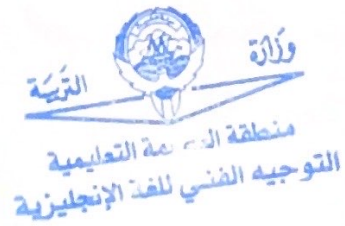 وزارة
التربية
منطقة العاصمة التعليمية
التوجيه الفني للغة الإنجليزية